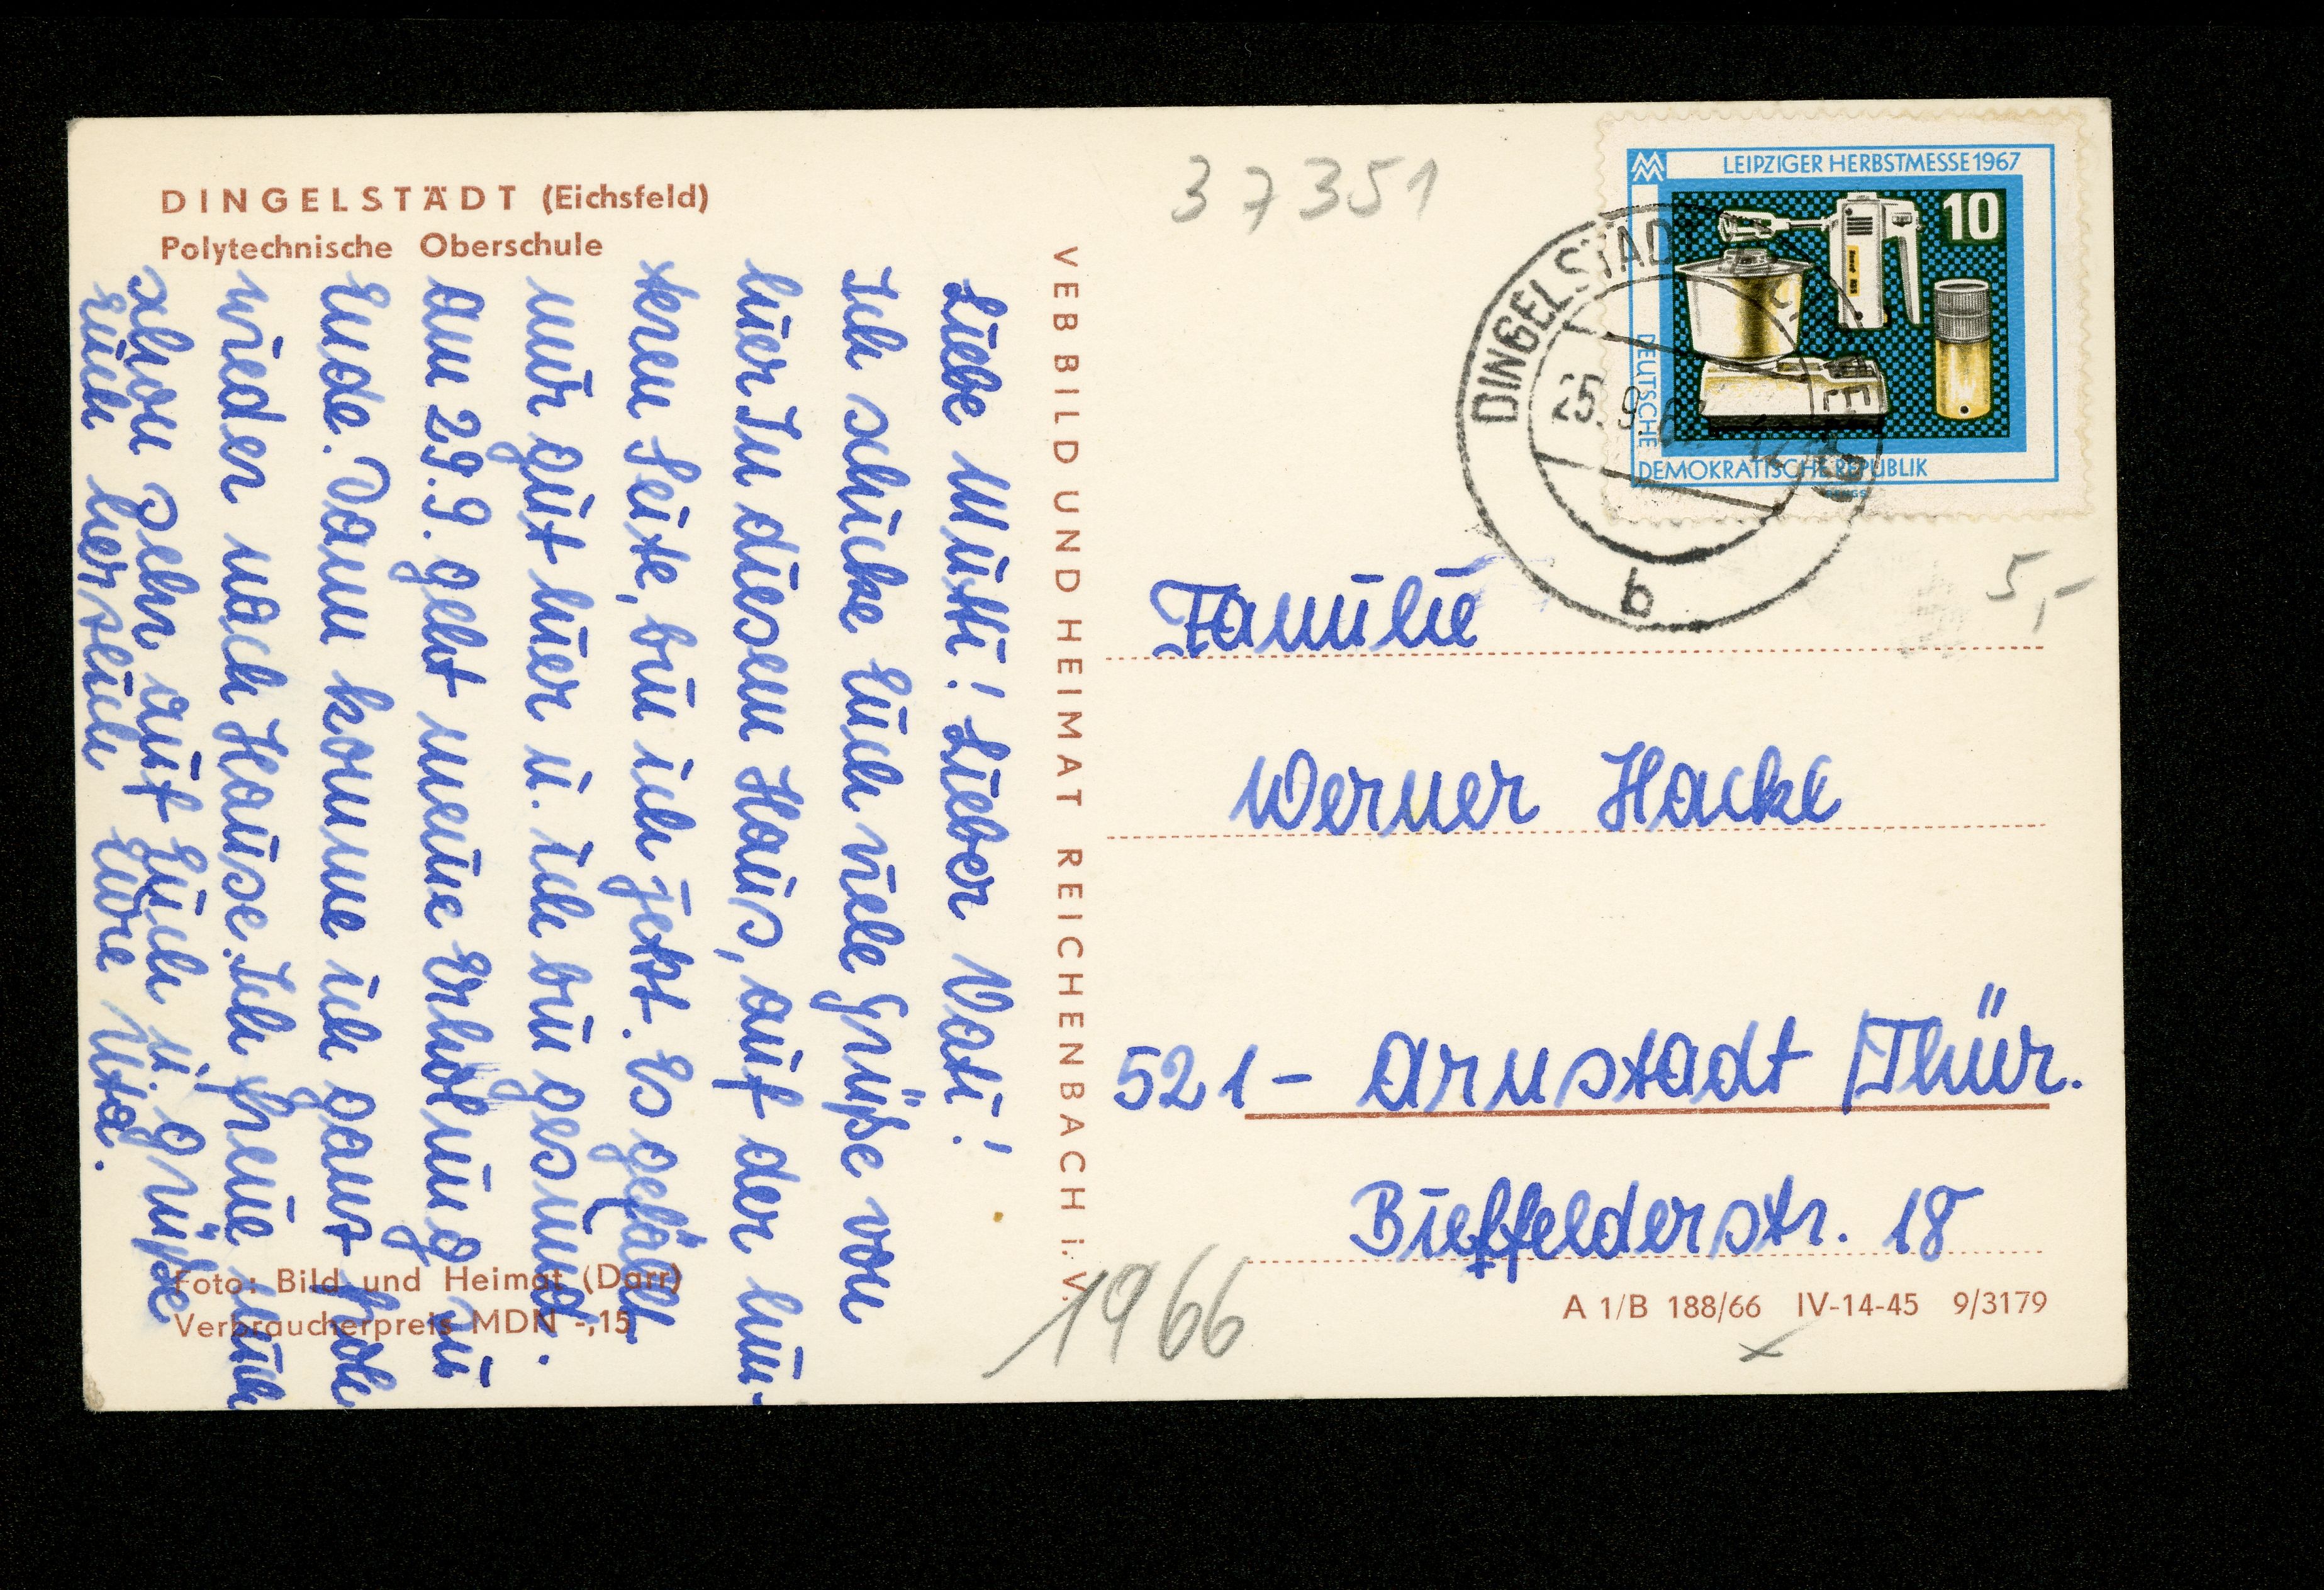 DINGELSTÄDT (Eichsfeld)
Polytechnische Oberschule
Liebe Mutti! Lieber Vati!
Ich schicke Euch viele Grüße von
hier. In diesem Haus, auf der hin-
teren Seite, bin ich jetzt. Es gefällt
mir gut hier u. ich bin gesund.
Am 29.9. geht meine Erholung zu
Ende. Dann komme ich ganz froh
wieder nach Hause. Ich freue mich
schon sehr auf Euch u. grüße
Euch herzlich Eure Uta.
Foto: Bild und Heimat (Darr)
Verbraucherpreis MDN -,15
VEB BILD UND HEIMAT REICHENBACH i. V.
1966
37351
LEIPZIGER HERBSTMESSE 1967
10
DEUTSCHE
DEMOKRATISCHE REPUBLIK
DINGELSTÄDT
25.9.
b
5,-
Familie
Werner Hacke
521- Arnstadt /Thür.
Bielfelderstr. 18
A 1/B 188/66 IV-14-45 9/3179